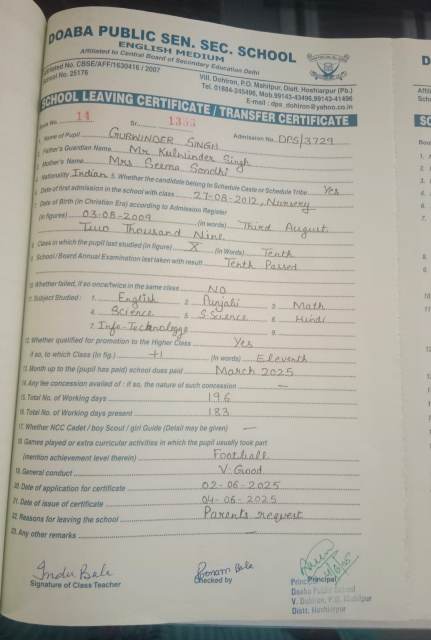 DOABA PUBLIC SEN. SEC. SCHOOL
ENGLISH MEDIUM
Affiliated to Central Board of Secondary Education Delhi
Affiliated No. CBSE/AFF/1630416 / 2007
School No. 25176
Vill. Dohiron, P.O. Mahilpur, Distt. Hoshiarpur (Pb.)
Tel. 01884-245496, Mob.99143-43496,99143-41496
E-mail : dps_dohiron@yahoo.co.in
SCHOOL LEAVING CERTIFICATE / TRANSFER CERTIFICATE
Book No. 14 Sr. 1355 Admission No. DPS/3729
Name of Pupil GURWINDER SINGH
Father's Guardian Name Mr Kulwinder Singh
Mother's Name Mrs Seema Sondhi
Nationality Indian 5. Whether the candidate belong to Schedule Caste or Schedule Tribe Yes
Date of first admission in the school with class 27-08-2012, Nursery
Date of Birth (in Christian Era) according to Admission Register
(in figures) 03-08-2009 (in words) Third August
Two Thousand Nine
Class in which the pupil last studied (in figure) X (in Words) Tenth
School/Board Annual Examination last taken with result Tenth Passed
10. Whether failed, if so once/twice in the same class NO
11. Subject Studied : 1. English 2. Punjabi 3. Math
4. Science 5. S.Science 6. Hindi
7. Info-Technology 9.
12. Whether qualified for promotion to the Higher Class Yes
if so, to which Class (in fig.) +1 (in words) Eleventh
13. Month up to the (pupil has paid) school dues paid March 2025
14. Any fee concession availed of : if so, the nature of such concession —
15. Total No. of Working days 196
16. Total No. of Working days present 183
17. Whether NCC Cadet / boy Scout / girl Guide (Detail may be given) —
18. Games played or extra curricular activities in which the pupil usually took part
(mention achievement level therein) Football
19. General conduct V. Good
20. Date of application for certificate 02-06-2025
21. Date of issue of certificate 04-06-2025
22. Reasons for leaving the school Parents request
23. Any other remarks —
Indu Bala
Signature of Class Teacher
Poonam Bala
Checked by
Principal
Doaba Public School
V. Dohiron, P.O. Mahilpur
Distt. Hoshiarpur